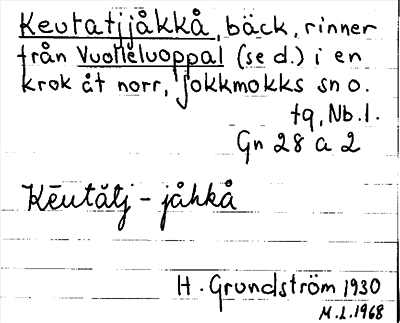 Keutatjjåkkå, bäck, rinner
från Vuolleluoppal (se d.) i en
krok åt norr, Jokkmokks sn o.
tg, Nb.l.
Gn 28 a 2
Kēutătj - jåhkå
H. Grundström 1930
M.L.1968